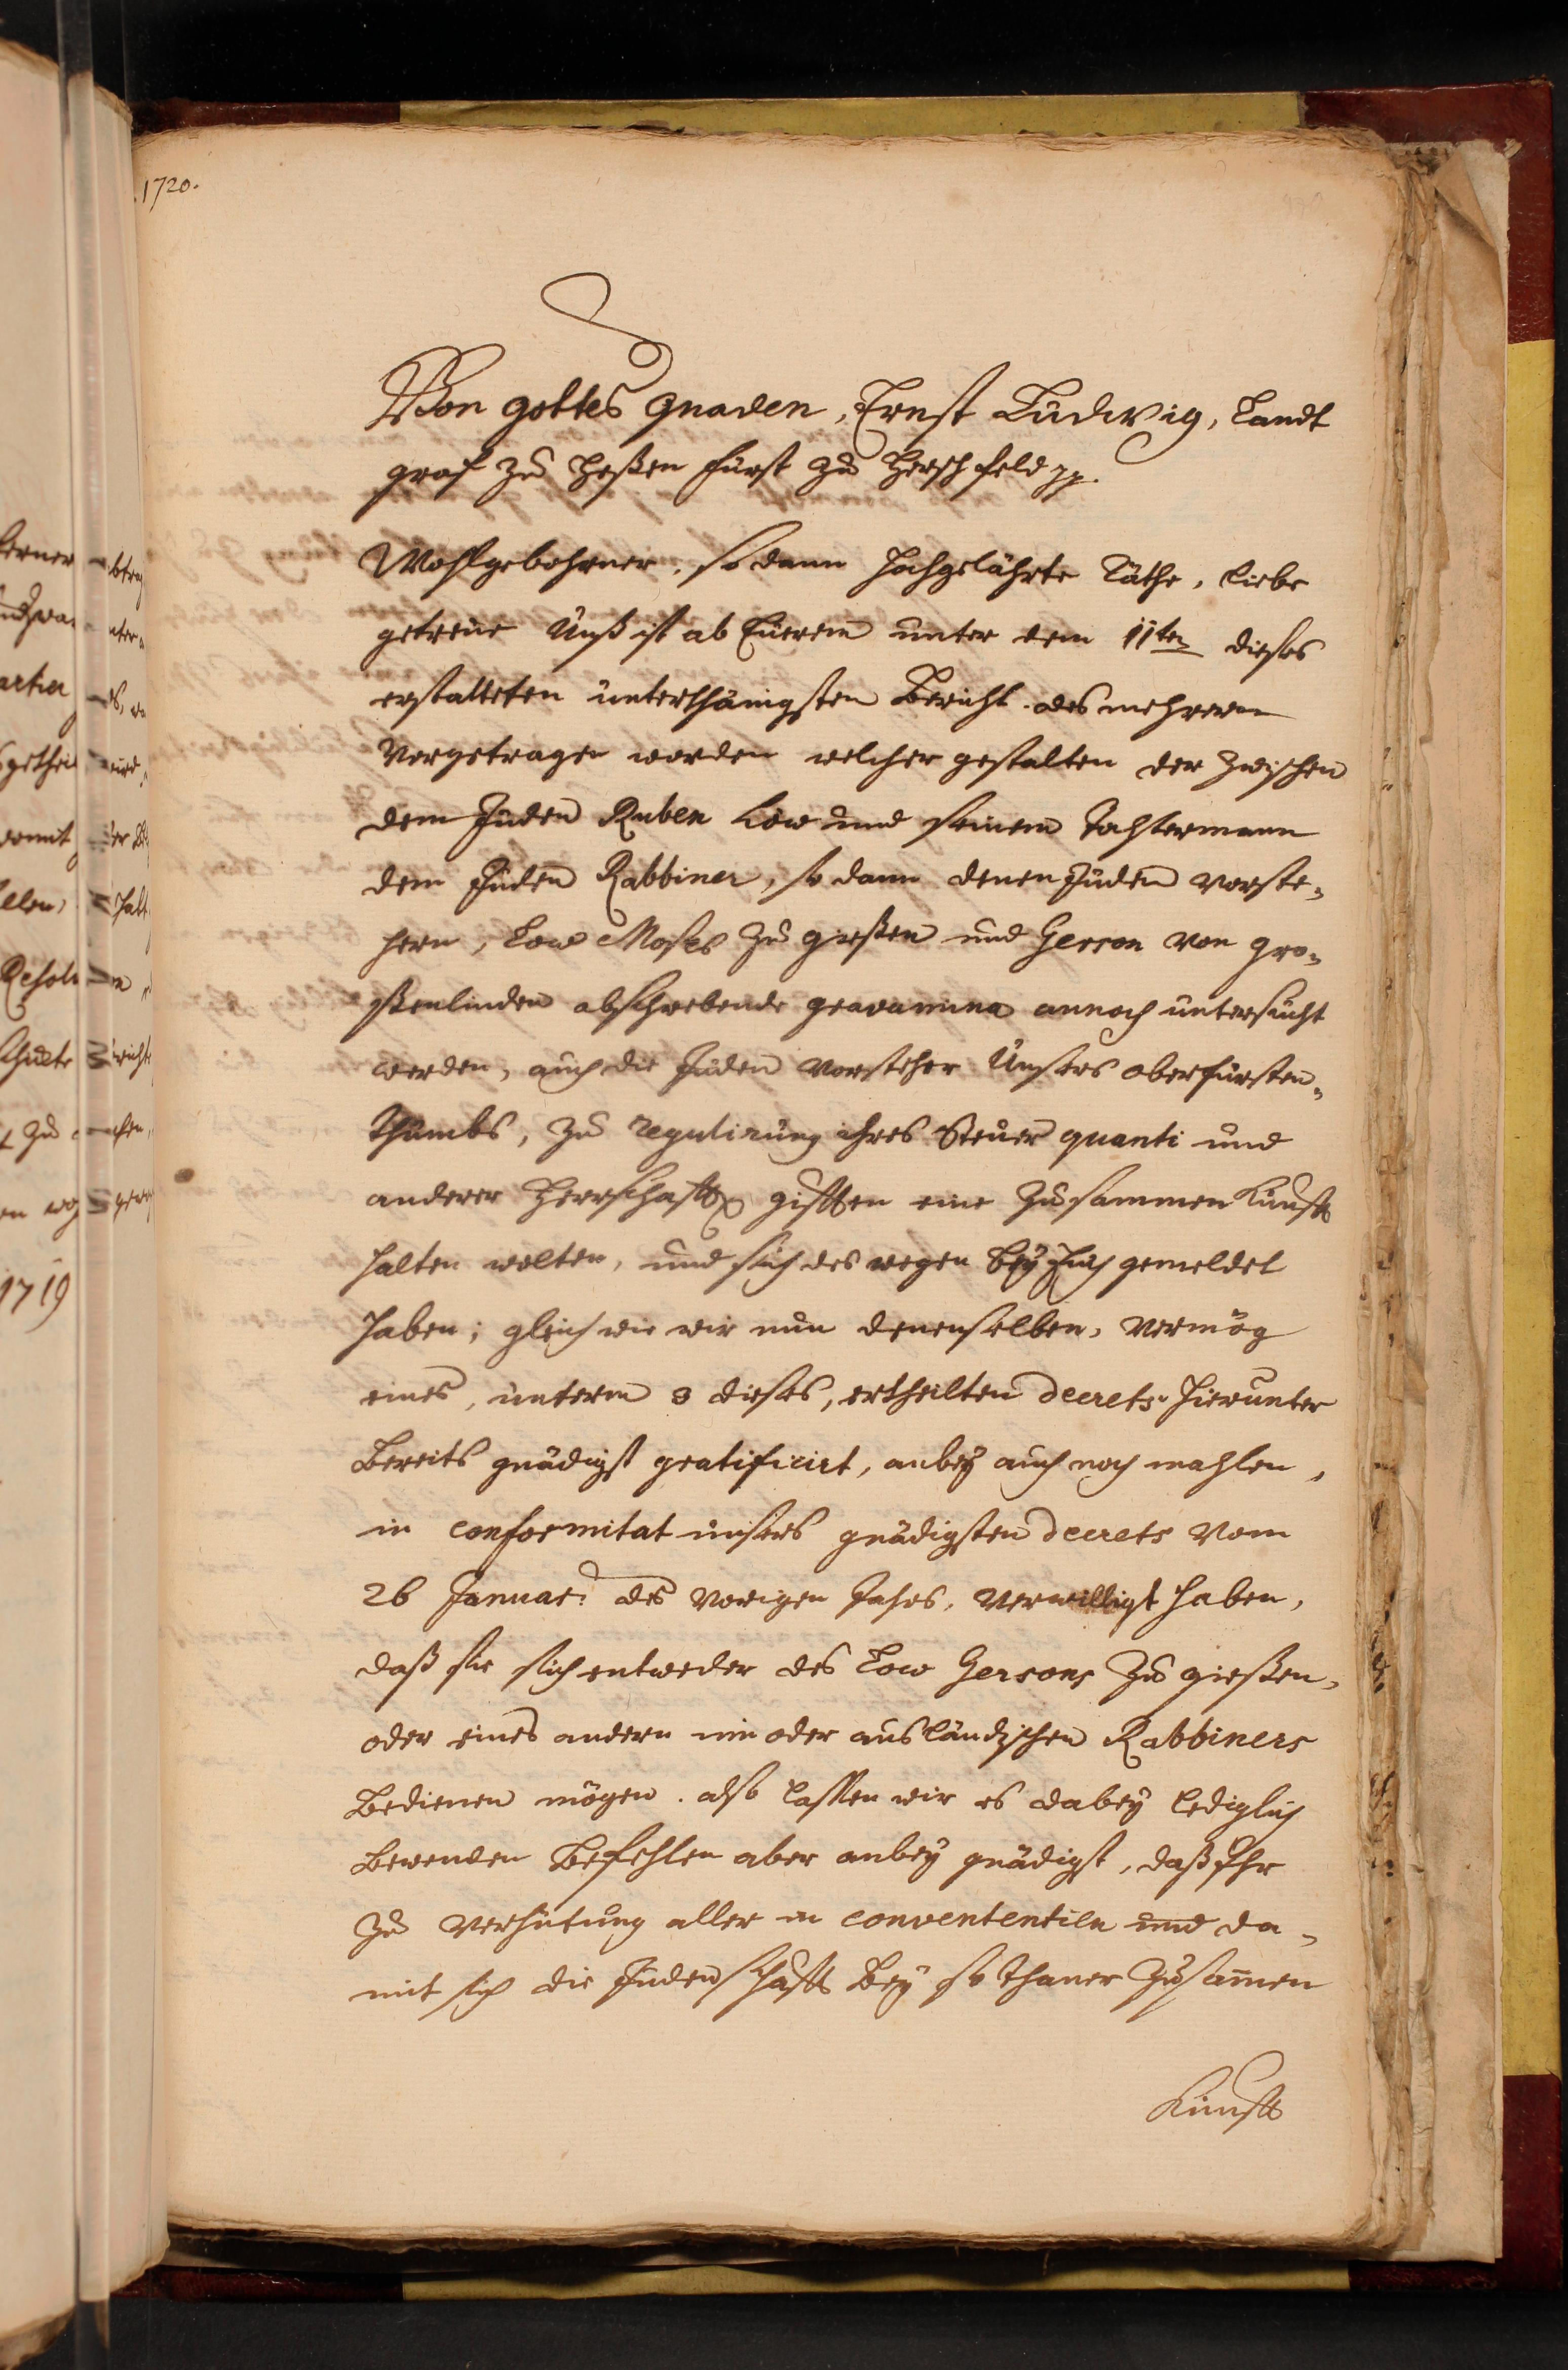 1720.
Von gottes gnaden, Ernst Ludwig, Landt
graf zu Heßen fürst zu Herschfeld pp.
Wohlgebohrner, so dann hochgelährte Räthe, liebe
getreüe Unß ist ab Eüerem unter dem 11ten dieses
erstatteten unterthänigsten Bericht des mehreren
vorgetragen worden welcher gestalten der zwischen
dem Juden Ruben Löw und seinem Tochtermann
dem Juden Rabbiner, so dann denen Juden vorste-
hern, Low Moses zu gießen und Gerson von gro-
ßenlinden obschwebende gravamina annoch untersucht
werden, auch die Juden vorsteher Unsers oberfürsten-
thumbs, zu regulirung ihres Steuer quanti und
anderer Herrschafftl. gifften eine Zusammen Kunfft
halten wolten, und sich des wegen bey Euch gemeldet
haben; gleich wie wir nun denenselben, vermög
eines, unterm 3 dieses, ertheilten decrets hierunter
Bereits gnädigst gratificirt, anbey auch noch mahlen,
in conformitat unsers gnädigsten decrets vom
26 Januar: des vorigen Jahrs, verwilligt haben,
daß sie sich entweder des Low Gersons zu gießen,
oder eines andern inn oder ausländischen Rabbiners
Bedienen mögen. also lassen wir es dabey lediglich
bewenden Befehlen aber anbey gnädigst, daß Ihr
zu verhütung aller in convententien und da-
mit sich die Judenschafft bey so thaner Zusammen
Kunfft
1719